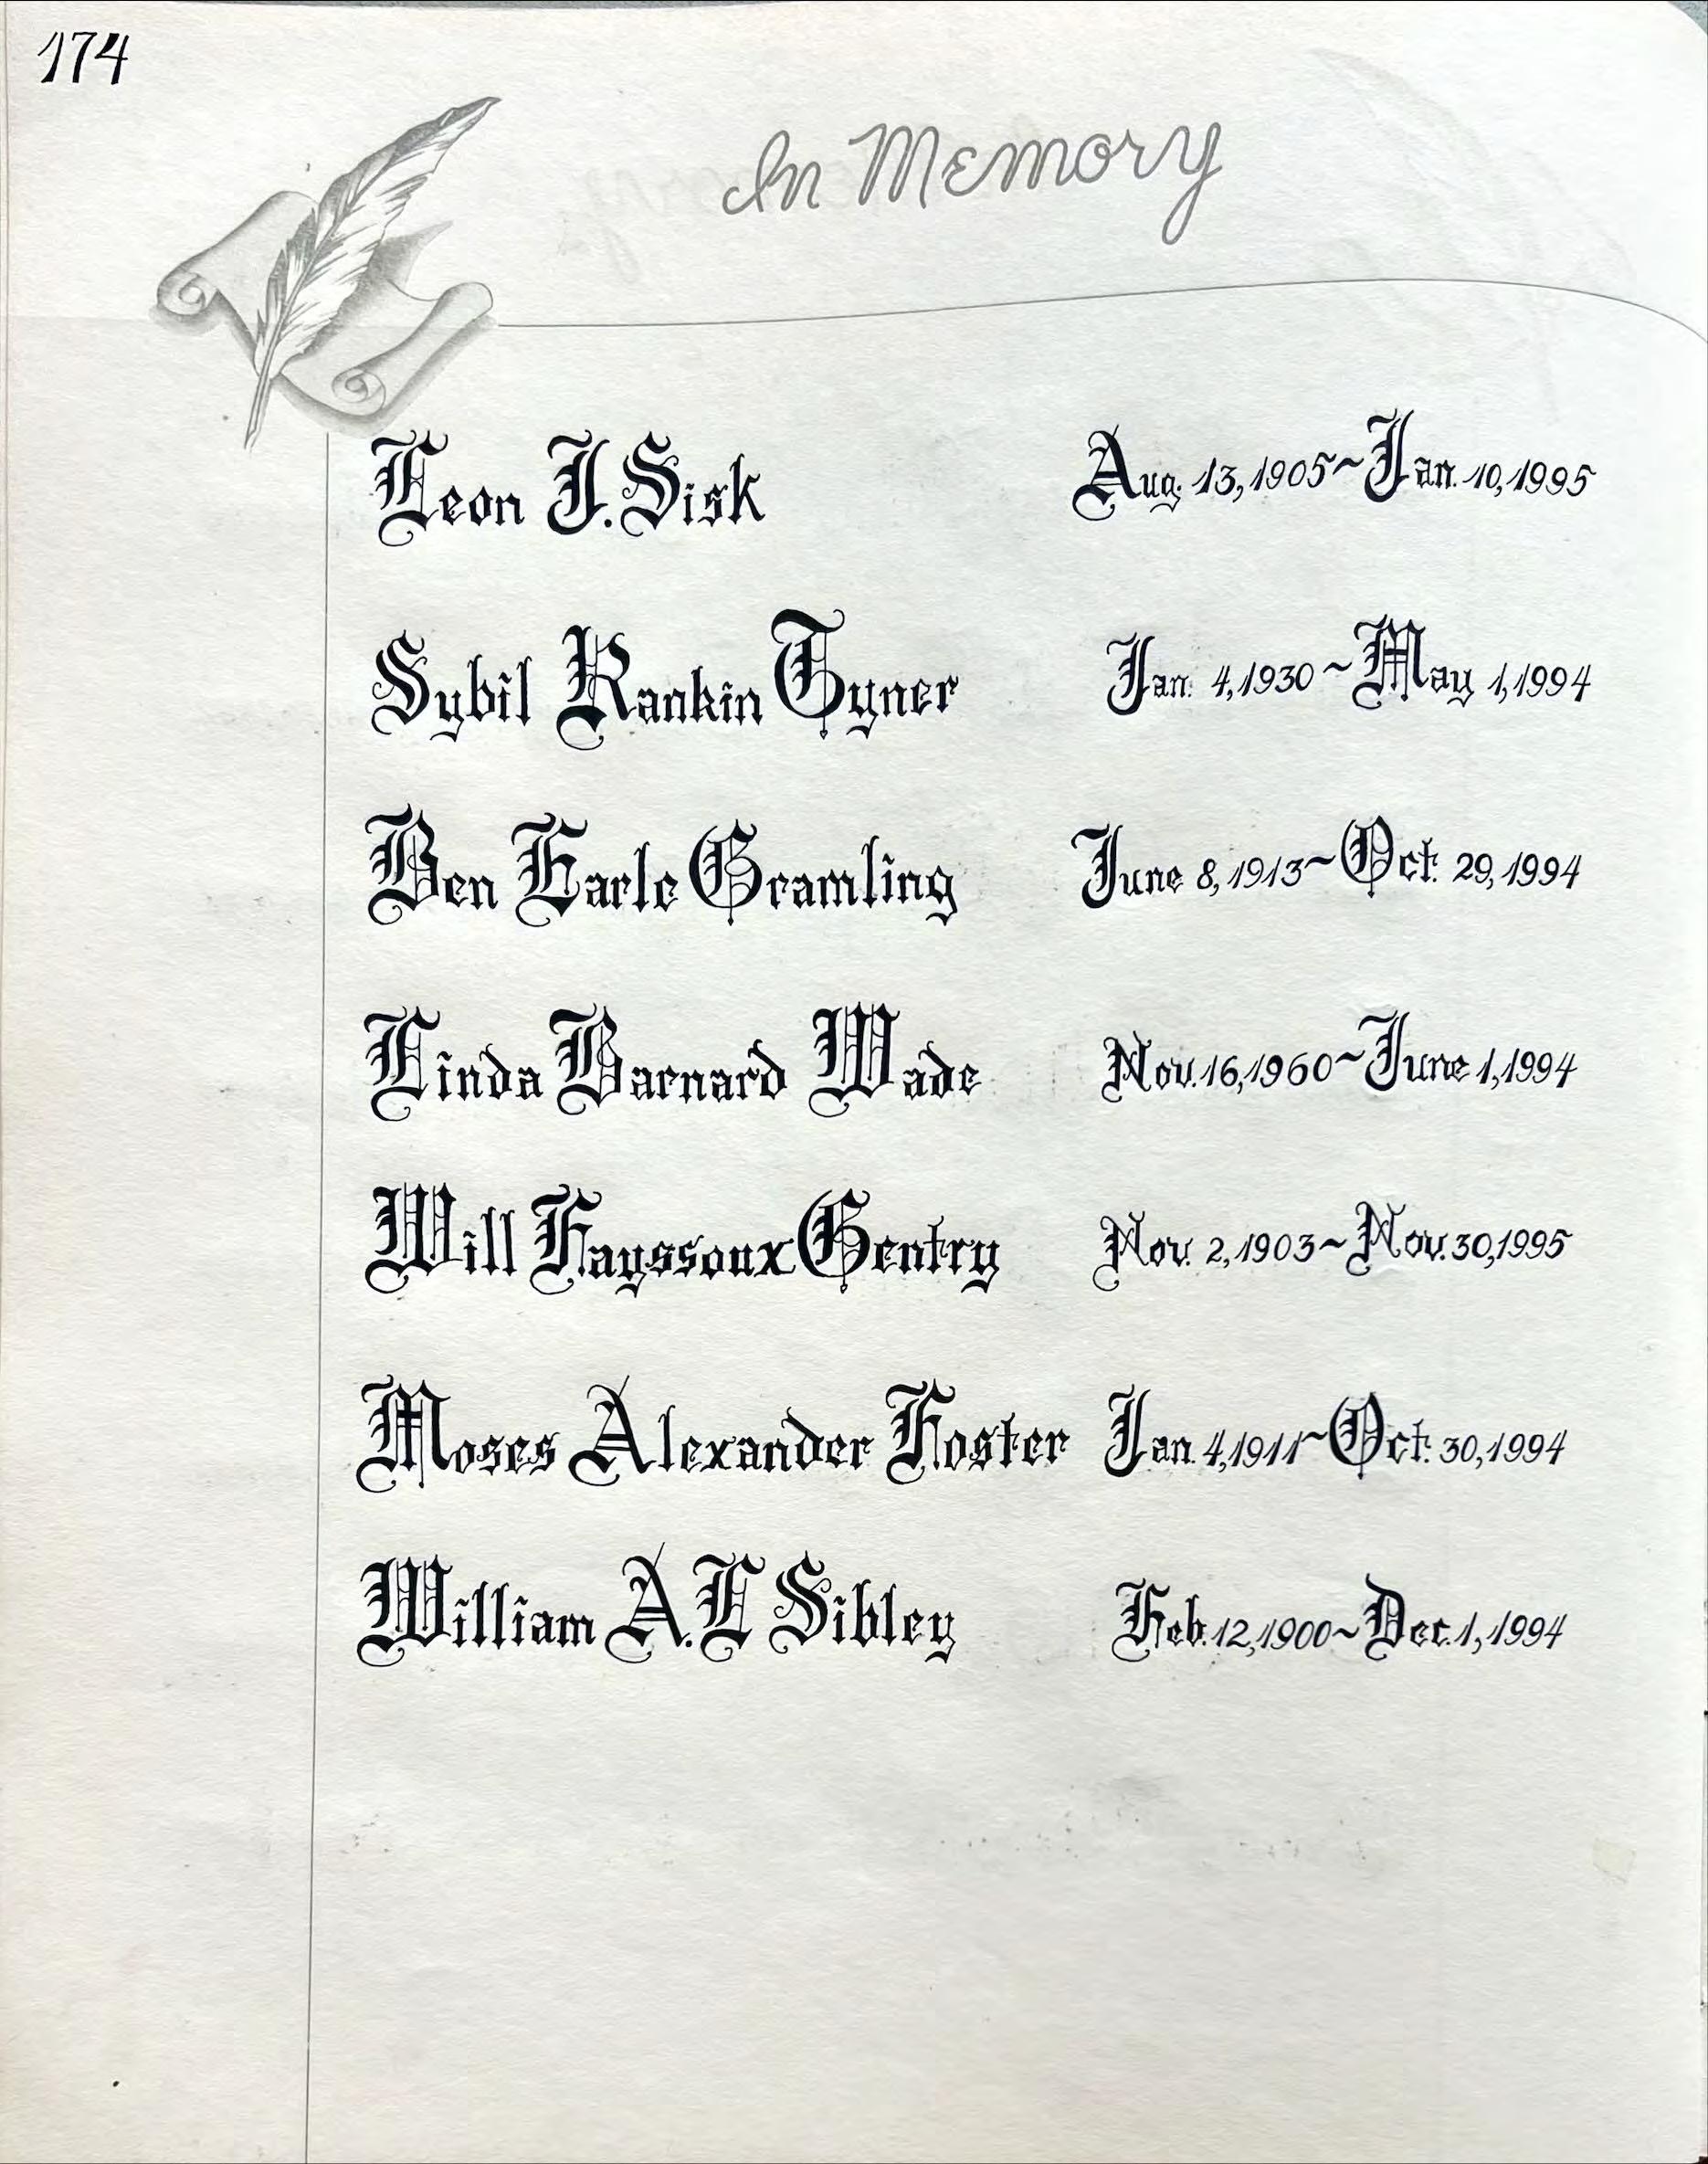 174
In Memory
Leon J. Sisk Aug. 13, 1905~Jan. 10, 1995
Sybil Rankin Tyner Jan. 4, 1930~May 1, 1994
Ben Earle Gramling June 8, 1913~Oct. 29, 1994
Linda Barnard Wade Nov. 16, 1960~June 1, 1994
Will Fayssoux Gentry Nov. 2, 1903~Nov. 30, 1995
Moses Alexander Foster Jan. 4, 1911~Oct. 30, 1994
William A. L Sibley Feb. 12, 1900~Dec. 1, 1994